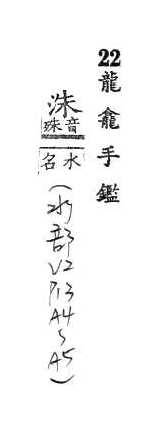 22龍龕手鑑
洙音殊水名(水部V2P13A4、A5)